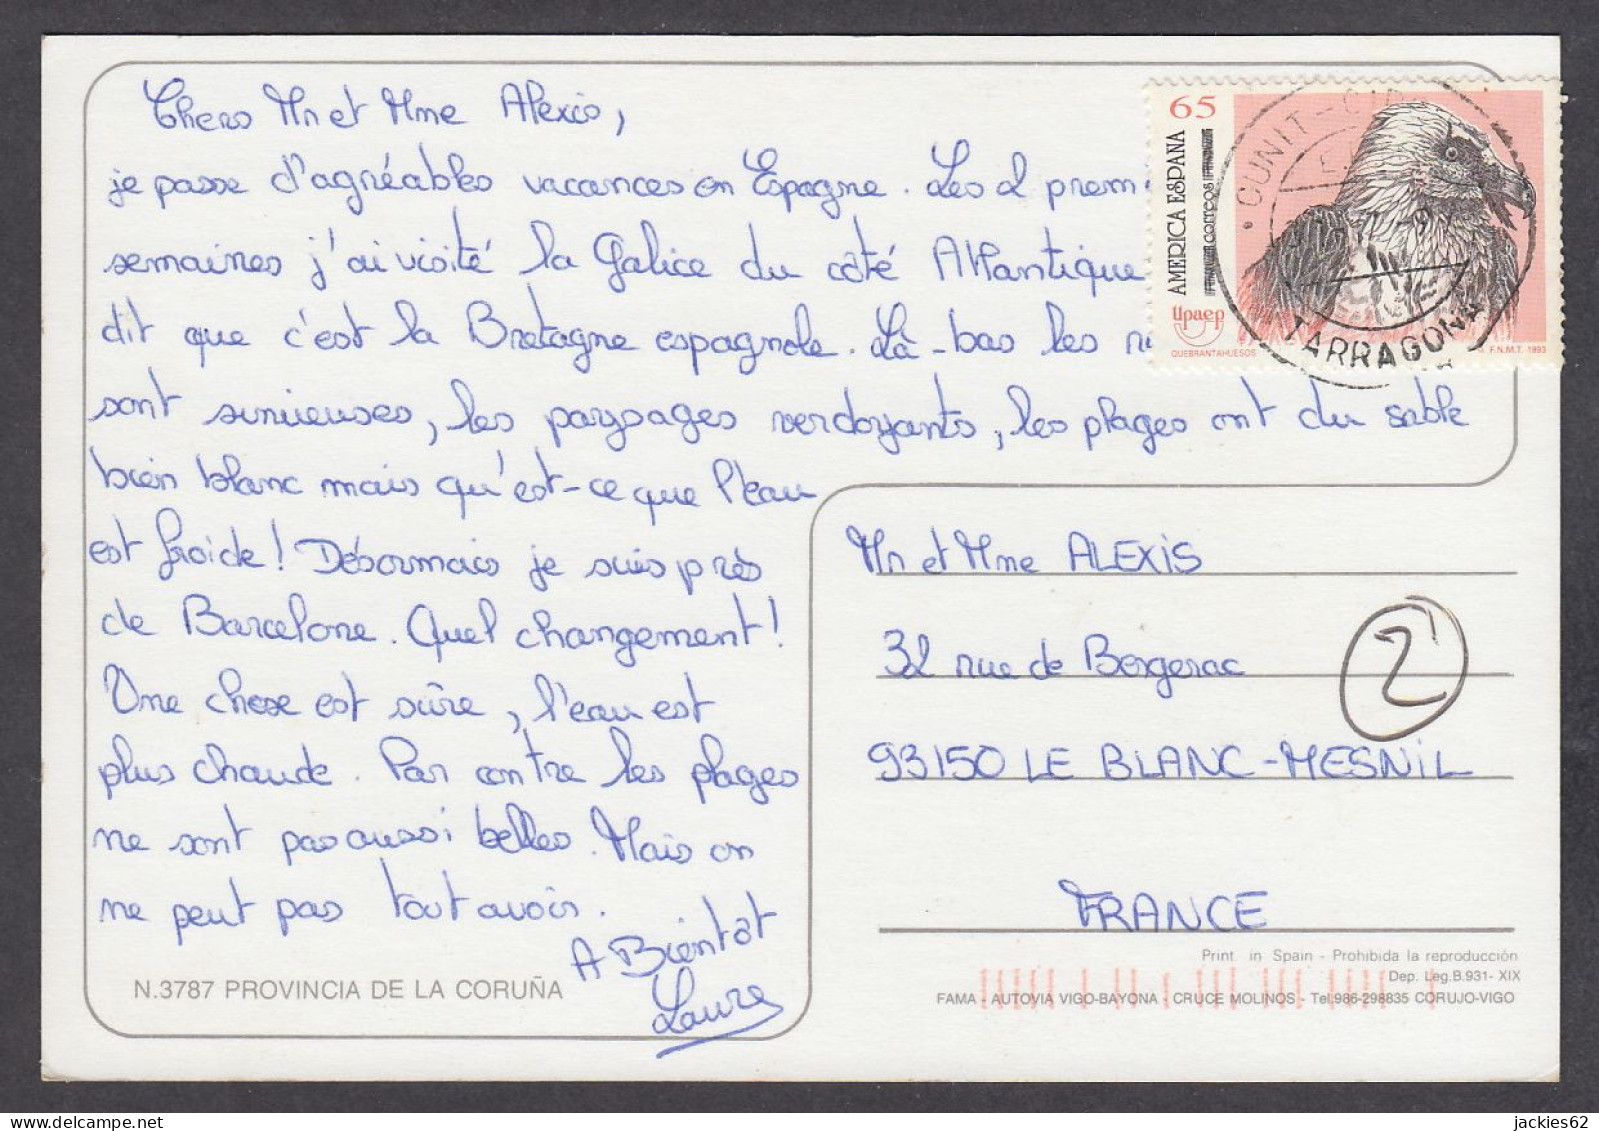 Chers Mr et Mme Alexis,
je passe d'agréables vacances en Espagne. Les 2 prem
semaines j'ai visité la Galice du côté Atlantique
dit que c'est la Bretagne espagnole. Là-bas les
sont sinueuses, les paysages verdoyants, les plages ont du sable
bien blanc mais qu'est-ce que l'eau
est froide! Désormais je suis près
de Barcelone. Quel changement!
Une chose est sûre, l'eau est
plus chaude. Par contre les plages
ne sont pas aussi belles. Mais on
ne peut pas tout avoir.
A Bientôt
Laure
N.3787 PROVINCIA DE LA CORUÑA
65
AMERICA ESPAÑA
correos
Upaep
QUEBRANTAHUESOS
F.N.M.T. 1993
CUNIT-
TARRAGONA
Mr et Mme ALEXIS
32 rue de Bergerac
93150 LE BLANC-MESNIL
FRANCE
2
Print in Spain - Prohibida la reproducción
Dep. Leg.B.931- XIX
FAMA - AUTOVIA VIGO-BAYONA - CRUCE MOLINOS - Tel.986-298835 CORUJO-VIGO
jackies62